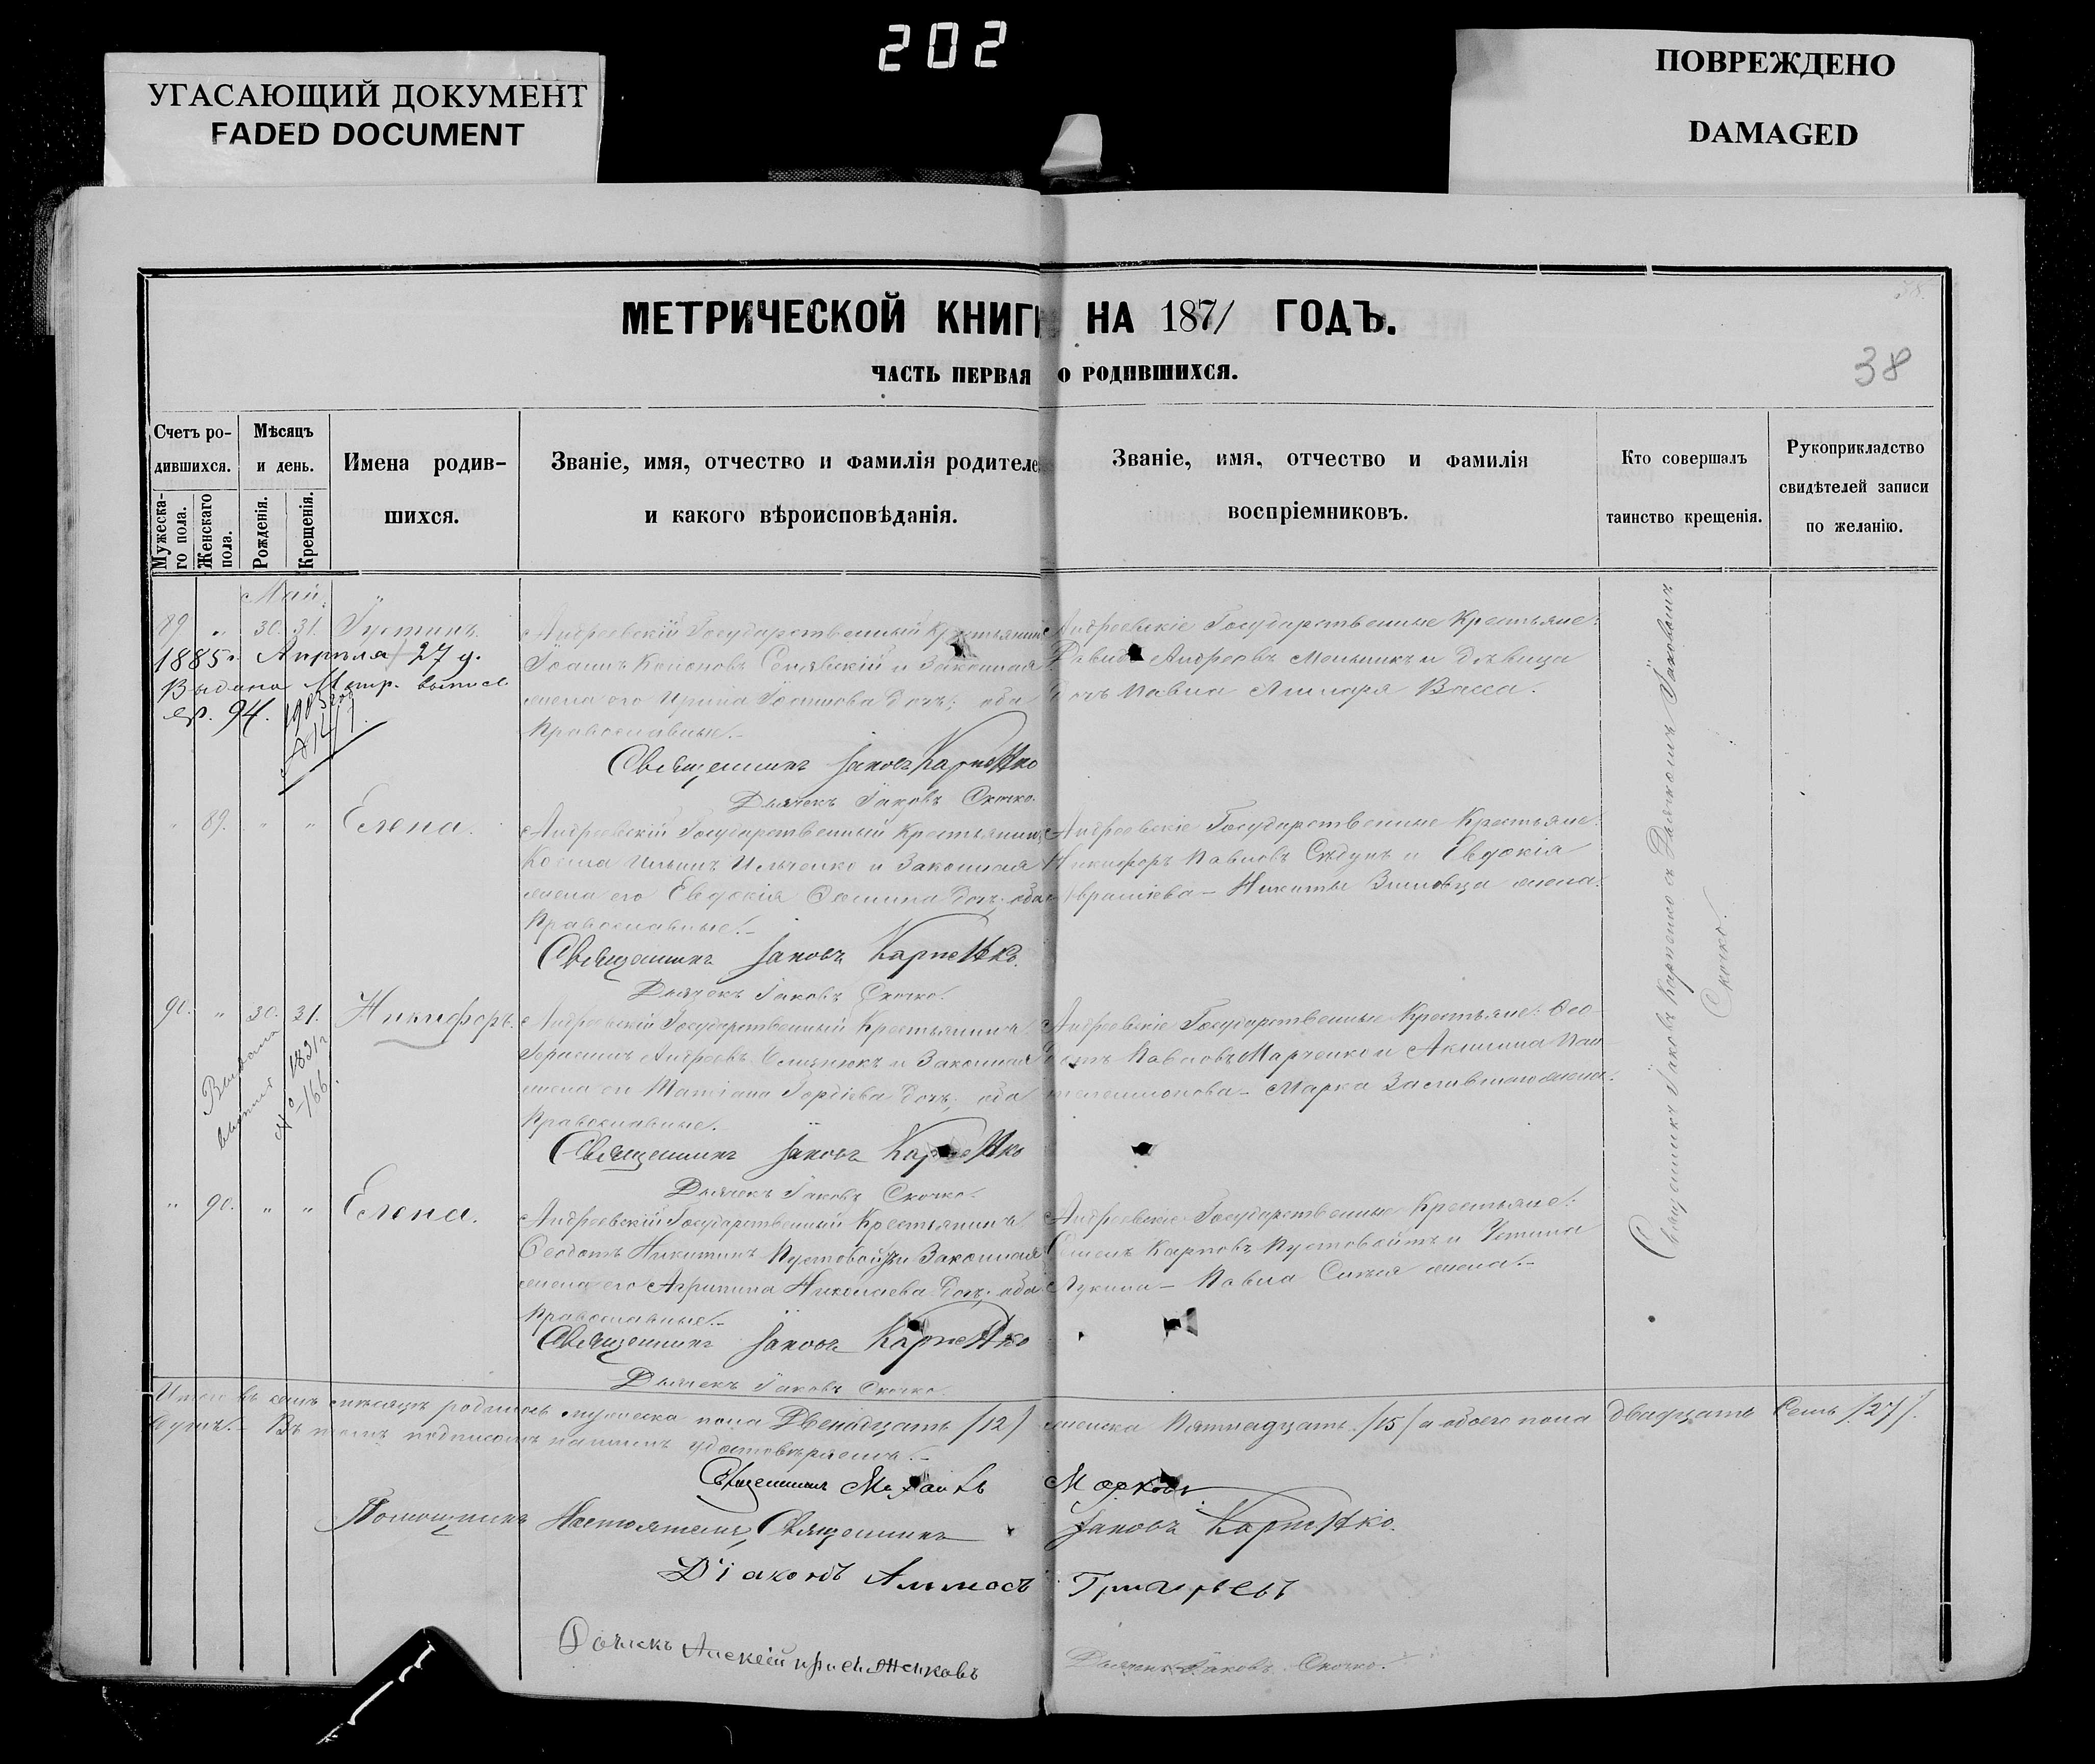 202
УГАСАЮЩИЙ ДОКУМЕНТ
FADED DOCUMENT
ПОВРЕЖДЕНО
DAMAGED
МЕТРИЧЕСКОЙ КНИГИ НА 1871 ГОДЪ.
ЧАСТЬ ПЕРВАЯ О РОДИВШИХСЯ.
38
Счетъ ро-
дившихся.
Мужеска-
го пола.
Женскаго
пола.
Мѣсяцъ
и день.
Рожденія.
Крещенія.
Имена родив-
шихся.
Званіе, имя, отчество и фамилія родителе
и какого вѣроисповѣданія.
Званіе, имя, отчество и фамилія
воспріемниковъ.
Кто совершалъ
таинство крещенія.
Рукоприкладство
свидѣтелей записи
по желанію.
Май.
89 " 30. 31. Іустинъ.
1885 г. Апрѣля 27 д.
Выдана Метр. выпис.
94.
Андреевскій Государственный Крестьянинъ
Іоаннъ и Законная
жена его Ирина Іоаннова дочь; оба
Православные.
Священникъ Іаковъ Карпенко
Дьячекъ Іаковъ Скочко.
Андреевскіе Государственные Крестьяне:
Давидъ Андреевъ Мельникъ и дѣвица
дочь Павла Васса.
" 89. " " Елена.
Андреевскій Государственный Крестьянинъ
Косма Ильинъ Ильченко и Законная
жена его Евдокія дочь; оба
Православные.
Священникъ Іаковъ Карпенко.
Дьячекъ Іаковъ Скочко.
Андреевскіе Государственные Крестьяне:
Никифоръ Павловъ Сѣдунъ и Евдокія
Никиты Зимовца жена.
90. " 30. 31. Никифоръ.
Выдана
№ 166.
Андреевскій Государственный Крестьянинъ
Андреевъ и Законная
жена его Татіана Гордіева дочь; оба
Православные.
Священникъ Іаковъ Карпенко
Дьячекъ Іаковъ Скочко.
Андреевскіе Государственные Крестьяне: Ѳео-
дотъ Павловъ Марченко и Акилина Пан-
телеимонова - Марка жена.
" 90. " " Елена.
Андреевскій Государственный Крестьянинъ
Ѳеодотъ Никитинъ Пустовойтъ и Законная
жена его Агрипина Николаева дочь; оба
Православные.
Священникъ Іаковъ Карпенко
Дьячекъ Іаковъ Скочко.
Андреевскіе Государственные Крестьяне:
Семенъ Карповъ Пустовойтъ и Устина
Лукина - Павла жена.
Священникъ Іаковъ Карпенко съ Дьячкомъ Іаковомъ
Скочко.
Итого въ семъ мѣсяцѣ родилось мужеска пола Двенадцать /12/ женска Пятнадцать /15/ а обоего пола двадцать семь /27/.
Въ томъ подписомъ нашимъ удостовѣряемъ.
Священникъ Михаилъ
Помощникъ Настоятеля, Священникъ Іаковъ Карпенко.
Діаконъ Григорьевъ
Дьячекъ Алексій
Дьячекъ Іаковъ Скочко.